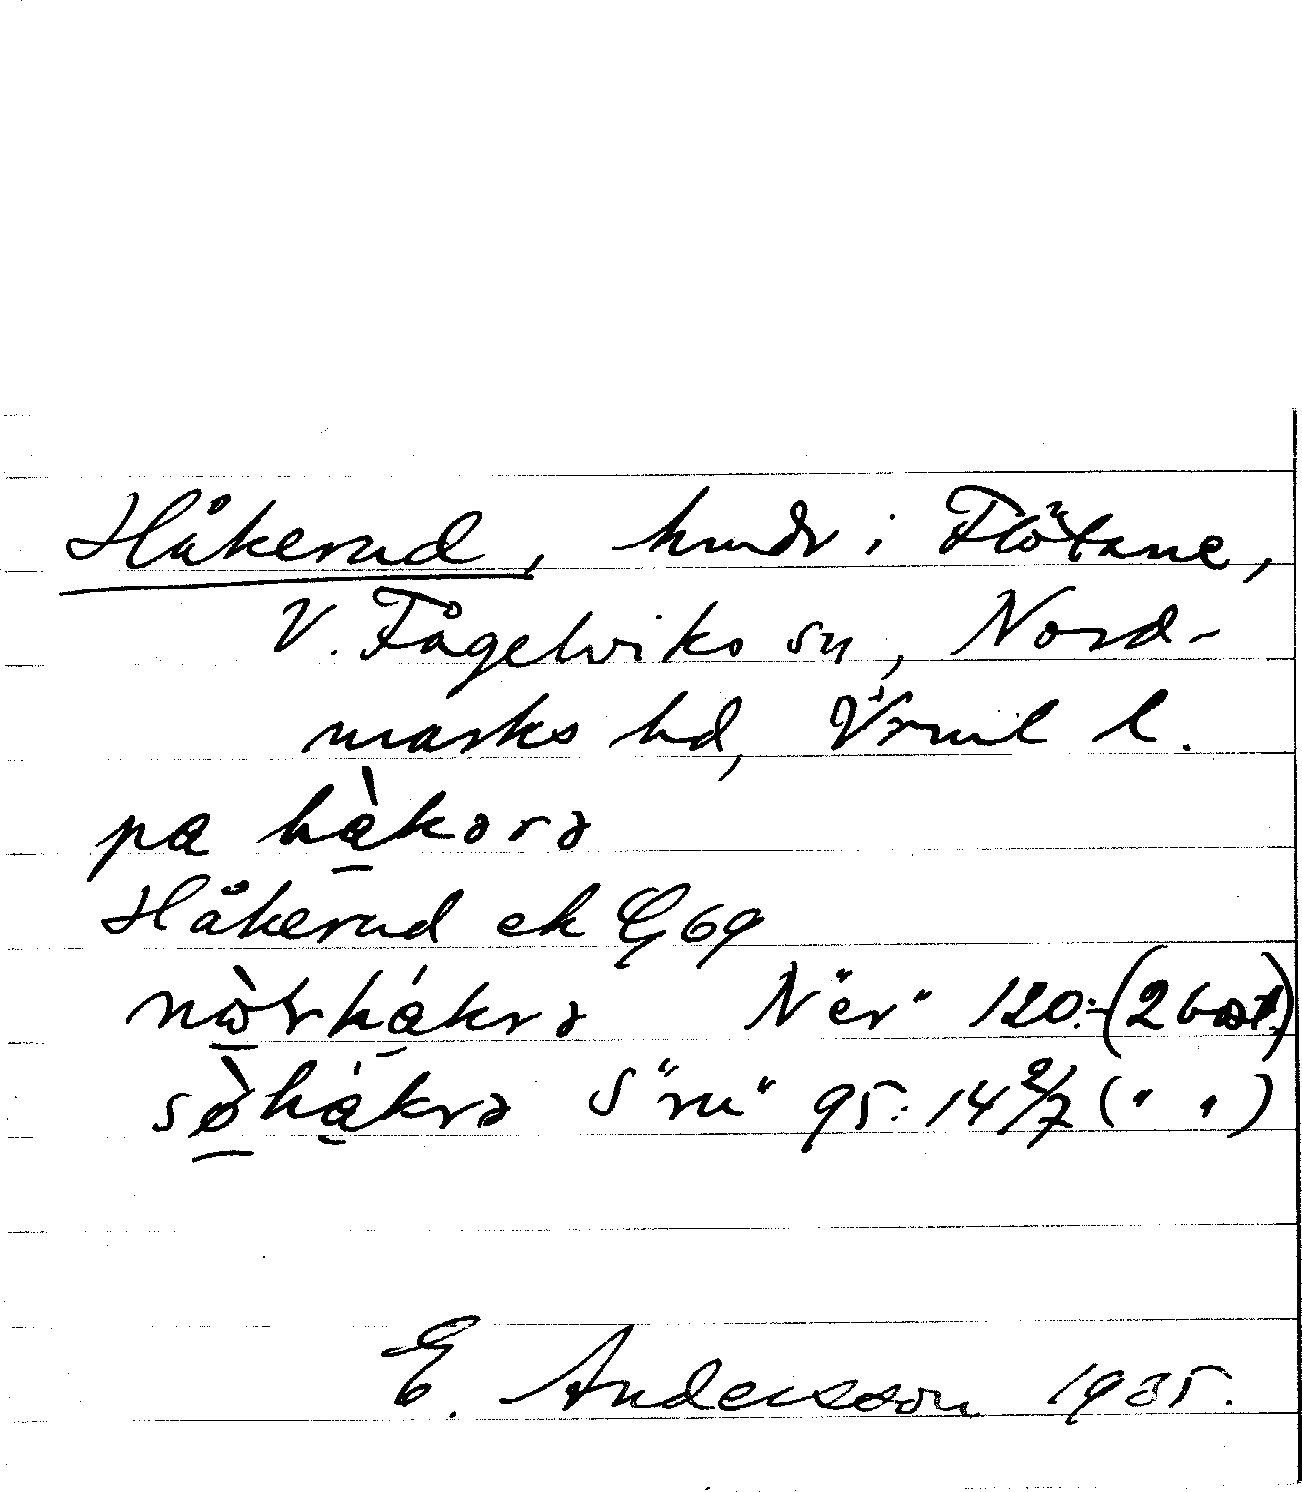 Håkerud, hmdr i Flötane,
V. Fågelviks sn, Nord-
marks hd, Värml l.
pa hàkərə
Håkerud ek G 69
nòrhákrə N "er" 120:- (2 bost)
sø̀hákrə S "ru" 95:14 2/7 (" ")
E. Andersson 1935.